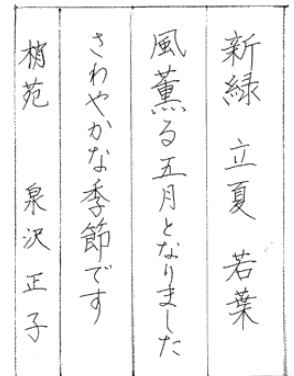 新緑 立夏 若葉
風薫る五月となりました
さわやかな季節です
梢苑 泉沢正子